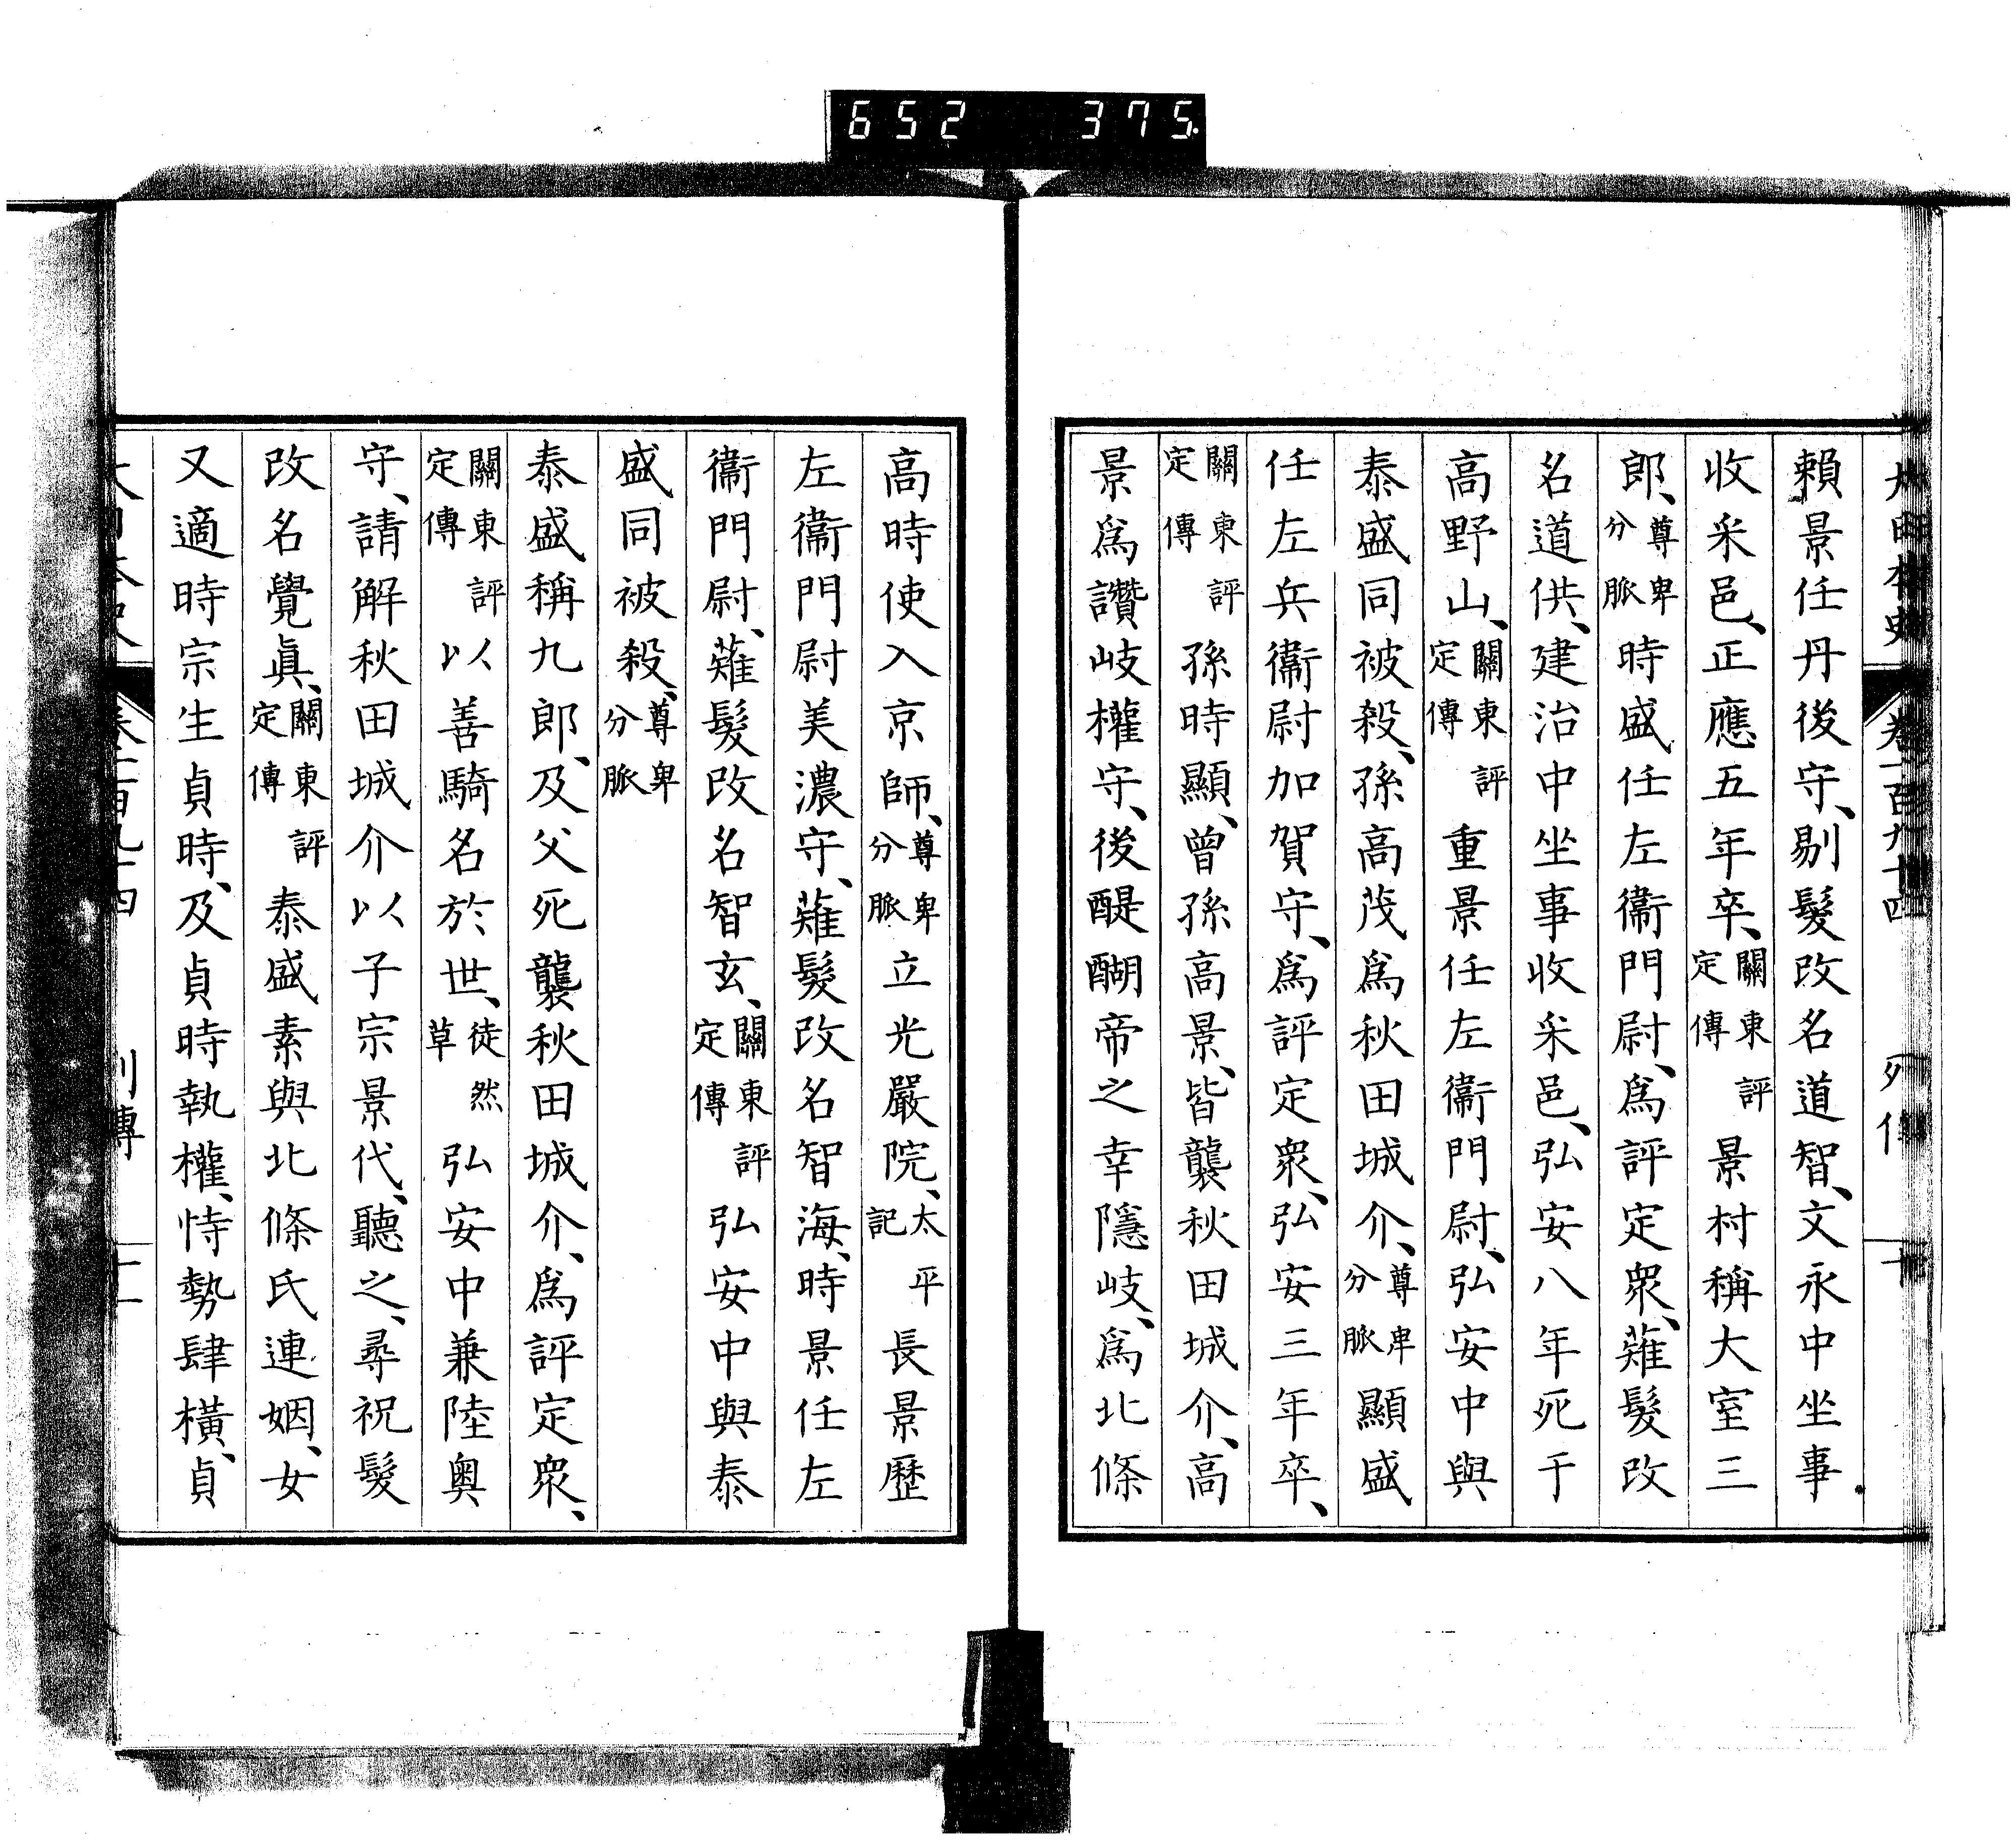 652 375
大日本史 卷一百九十四 列傳 十
賴景任丹後守、剔髮改名道智、文永中坐事
收釆邑、正應五年卒、關東評定傳景村稱大室三
郎、尊卑分脈時盛任左衞門尉、爲評定眾、薙髮改
名道供、建治中坐事收釆邑、弘安八年死于
高野山、關東評定傳重景任左衞門尉、弘安中與
泰盛同被殺、孫高茂爲秋田城介、尊卑分脈顯盛
任左兵衞尉加賀守、爲評定眾、弘安三年卒、
關東評定傳孫時顯、曾孫高景、皆襲秋田城介、高
景爲讚岐權守、後醍醐帝之幸隱岐、爲北條
高時使入京師、尊卑分脈立光嚴院、太平記長景歷
左衞門尉美濃守、薙髮改名智海、時景任左
衞門尉、薙髮改名智玄、關東評定傳弘安中與泰
盛同被殺、尊卑分脈
泰盛稱九郎、及父死襲秋田城介、爲評定眾、
關東評定傳以善騎名於世、徒然草弘安中兼陸奧
守、請解秋田城介以子宗景代、聽之、尋祝髮
改名覺眞、關東評定傳泰盛素與北條氏連姻、女
又適時宗生貞時、及貞時執權、恃勢肆橫、貞
大日本史 卷一百九十四 列傳 十一